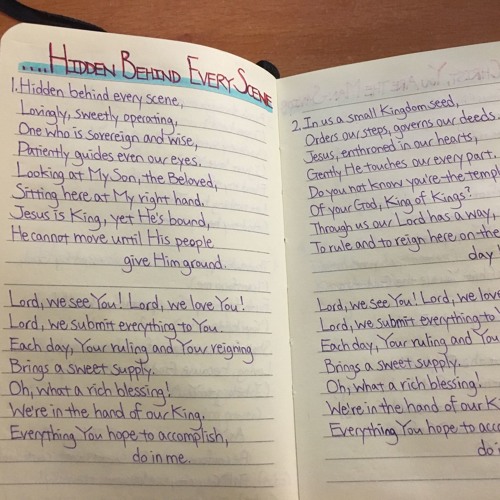 ....HIDDEN BEHIND EVERY SCENE
1. Hidden behind every scene,
Lovingly, sweetly operating,
One who is sovereign and wise,
Patiently guides even our eyes.
Looking at My Son, the Beloved,
Sitting here at My right hand,
Jesus is King, yet He's bound,
He cannot move until His people
give Him ground.
Lord, we see You! Lord, we love You!
Lord, we submit everything to You.
Each day, Your ruling and Your reigning
Brings a sweet supply.
Oh, what a rich blessing!
We're in the hand of our King.
Everything You hope to accomplish,
do in me.
2. In us a small Kingdom seed,
Orders our steps, governs our deeds.
Jesus, enthroned in our hearts,
Gently He touches our every part.
Do you not know you're the
Of your God, King of Kings?
Through us our Lord has a way,
To rule and to reign here on the
day
Lord, we see You! Lord, we love
Lord, we submit everything to
Each day, Your ruling and
Brings a sweet supply.
Oh, what a rich blessing!
We're in the hand of our
Everything You hope to
do